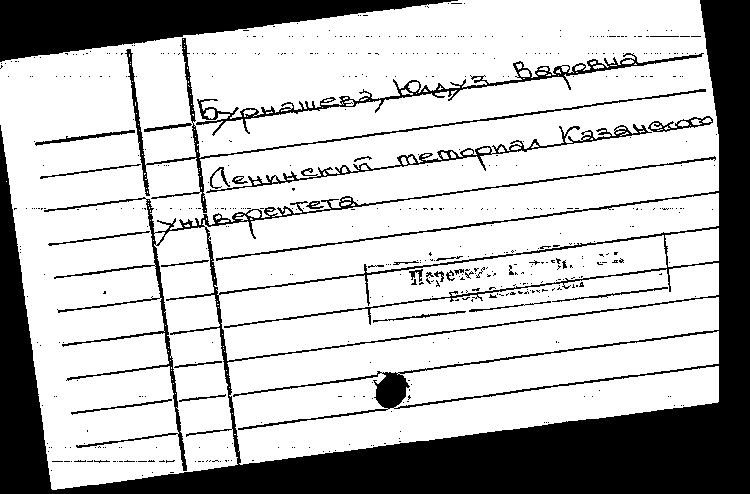 Бурнашева, Юлдуз Вафовна
Ленинский мемориал Казанского
университета
под